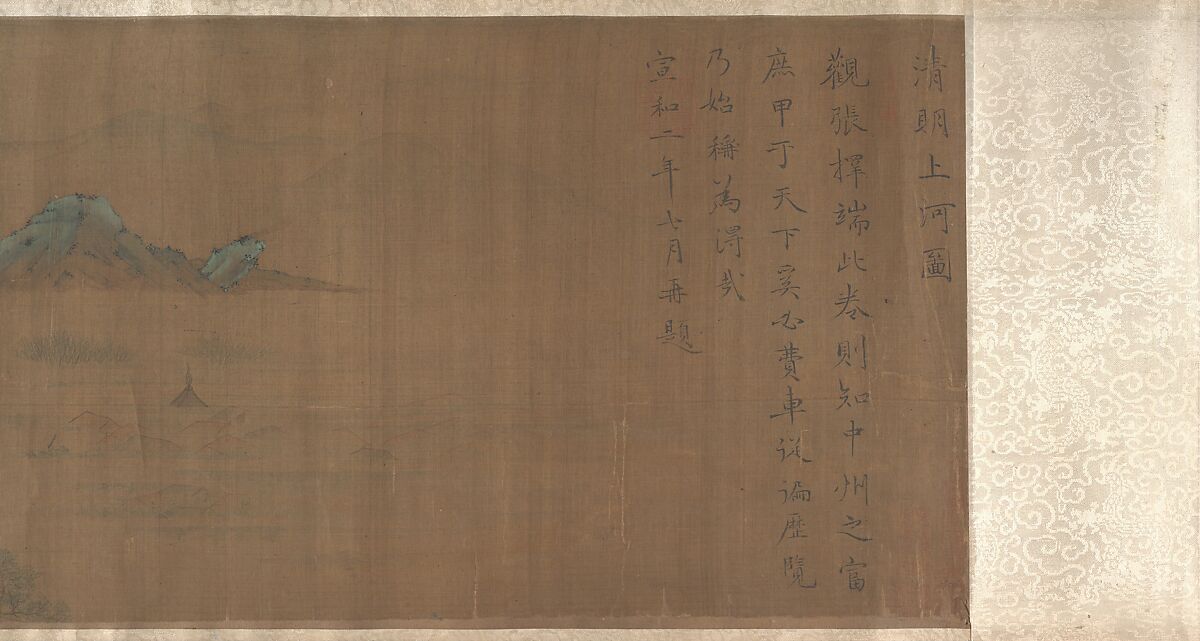 清明上河圖
觀張擇端此卷則知中州之富
庶甲于天下奚必費車從遍歷覽
乃始稱為得哉
宣和二年七月再題